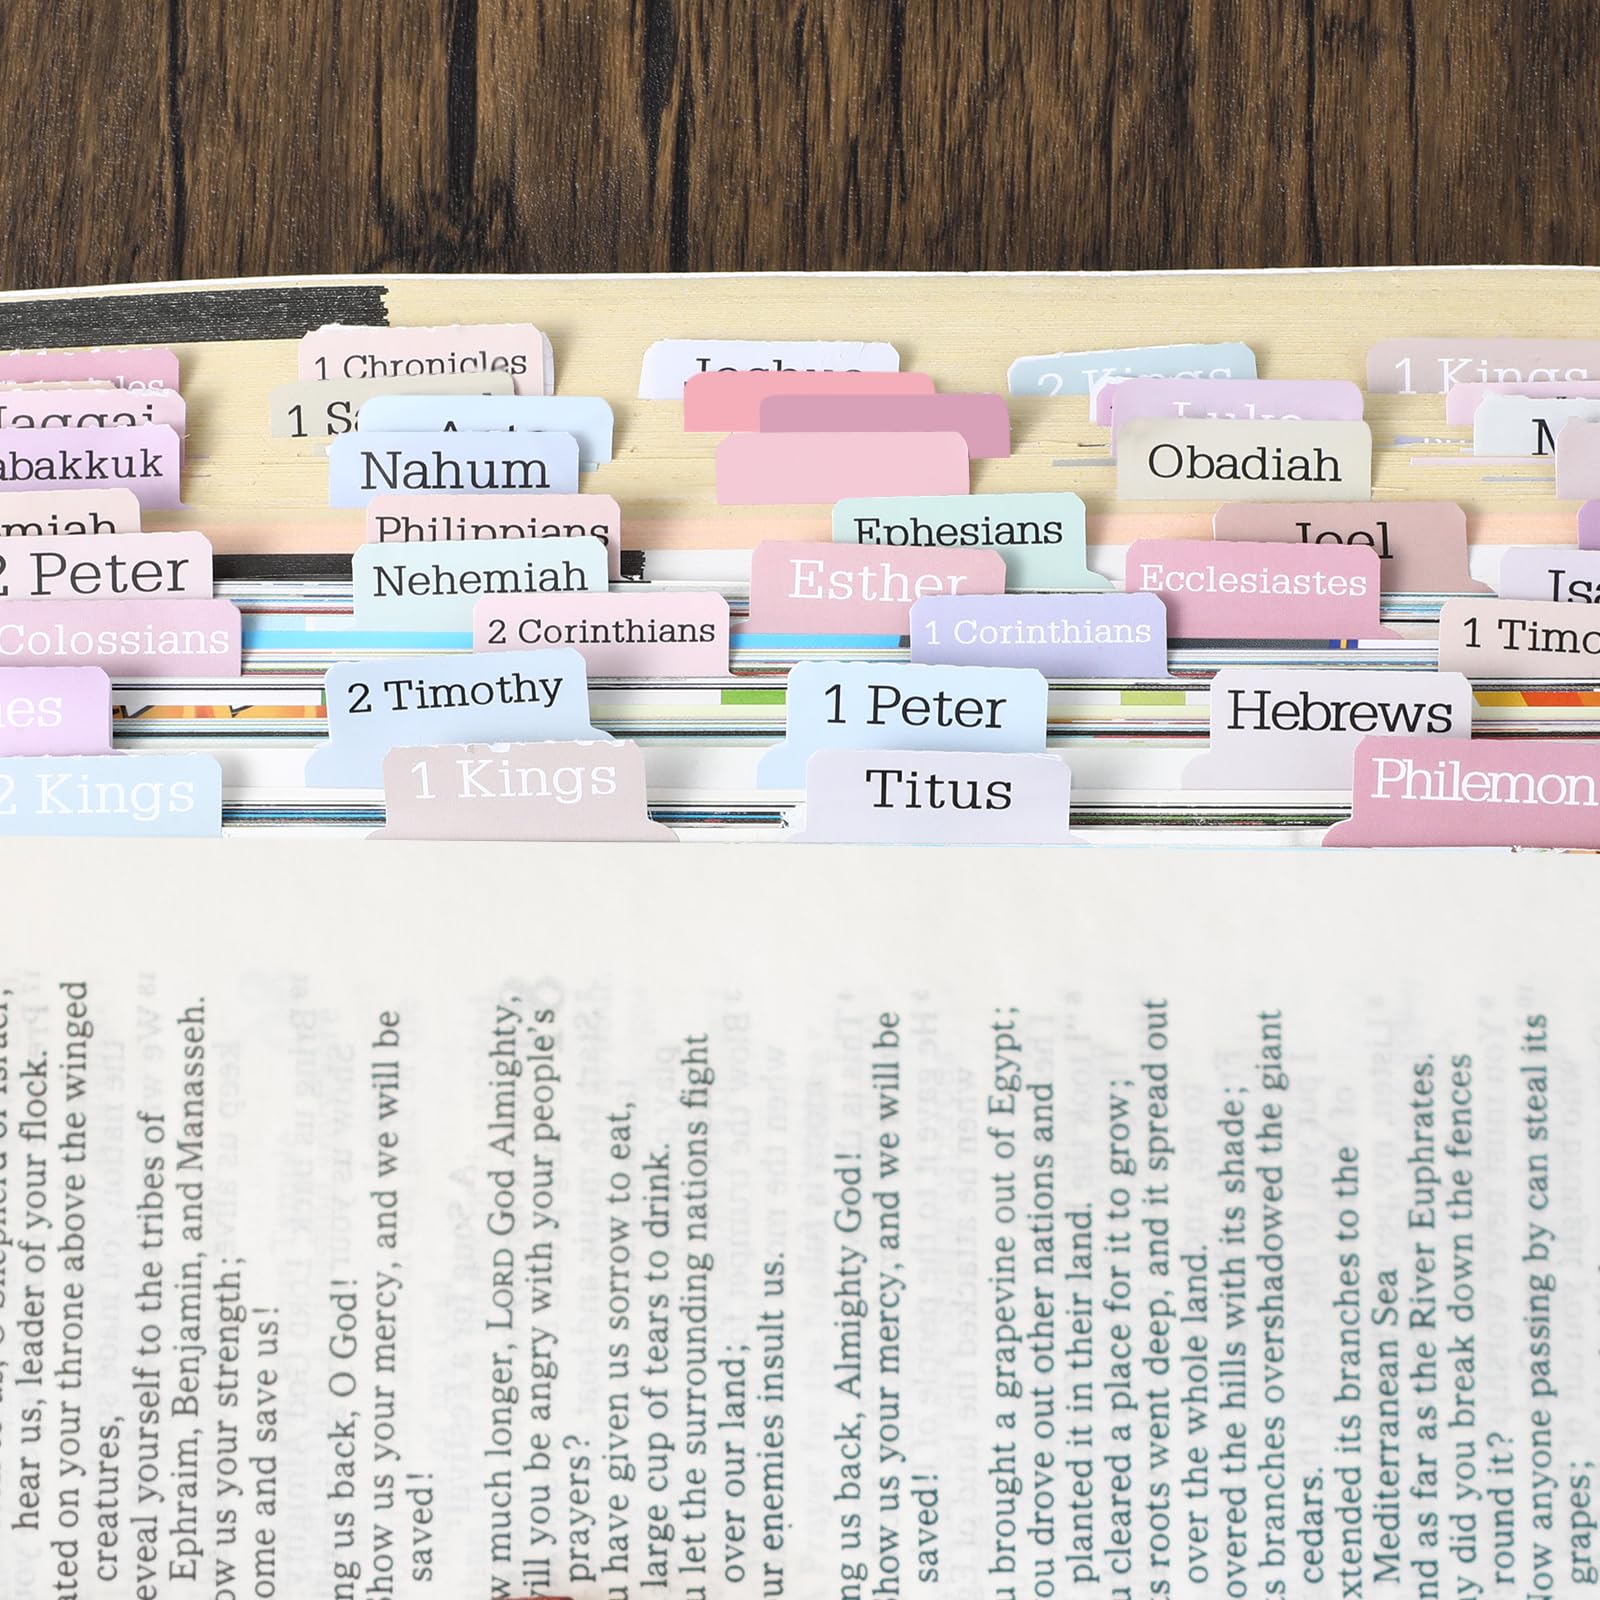 1 Chronicles
Joshua
2 Kings
1 Kings
Haggai
1 Sa
Acts
Luke
M
abakkuk
Nahum
Obadiah
miah
Philippians
Ephesians
Joel
2 Peter
Nehemiah
Esther
Ecclesiastes
Isa
Colossians
2 Corinthians
1 Corinthians
1 Timo
nes
2 Timothy
1 Peter
Hebrews
2 Kings
1 Kings
Titus
Philemon
hear us, leader of your flock.
ated on your throne above the winged
creatures,
eveal yourself to the tribes of
Ephraim, Benjamin, and Manasseh.
ow us your strength;
ome and save us!
ng us back, O God!
Show us your mercy, and we will be
saved!
w much longer, LORD God Almighty,
will you be angry with your people's
prayers?
u have given us sorrow to eat,
large cup of tears to drink.
u let the surrounding nations fight
over our land;
ur enemies insult us.
ng us back, Almighty God!
Show us your mercy, and we will be
saved!
u brought a grapevine out of Egypt;
ou drove out other nations and
planted it in their land.
u cleared a place for it to grow;
ts roots went deep, and it spread out
over the whole land.
overed the hills with its shade;
ts branches overshadowed the giant
cedars.
xtended its branches to the
Mediterranean Sea
nd as far as the River Euphrates.
y did you break down the fences
round it?
Now anyone passing by can steal its
grapes;